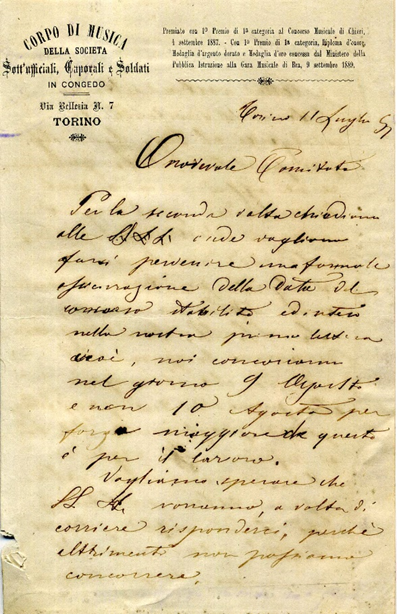 CORPO DI MUSICA
DELLA SOCIETA
Sott'ufficiali, Caporali e Soldati
IN CONGEDO
Via Bellezia N. 7
TORINO
Premiato con 1º Premio di 1ª categoria al Concorso Musicale di Chieri,
4 settembre 1887. - Con 1º Premio di 1ª categoria, Diploma d'onore,
Medaglia d'argento dorato e Medaglia d'oro concessa dal Ministero della
Pubblica Istruzione alla Gara Musicale di Bra, 9 settembre 1889.
Torino 11 Luglio
Onorevole Comitato
Per la seconda volta chiediamo
alle S.S.L.L. vogliono
farci pervenire una formale
assicurazione della data del
concorso stabilito ed inteso
nella nostra prima lettera
cioè, noi concorriamo
nel giorno 9 Agosto
e non 10 Agosto per
forza maggiore questo
è per il lavoro.
Vogliamo sperare che
SS. vorranno, a volta di
corriere risponderci, perchè
altrimenti non possiamo
concorrere,